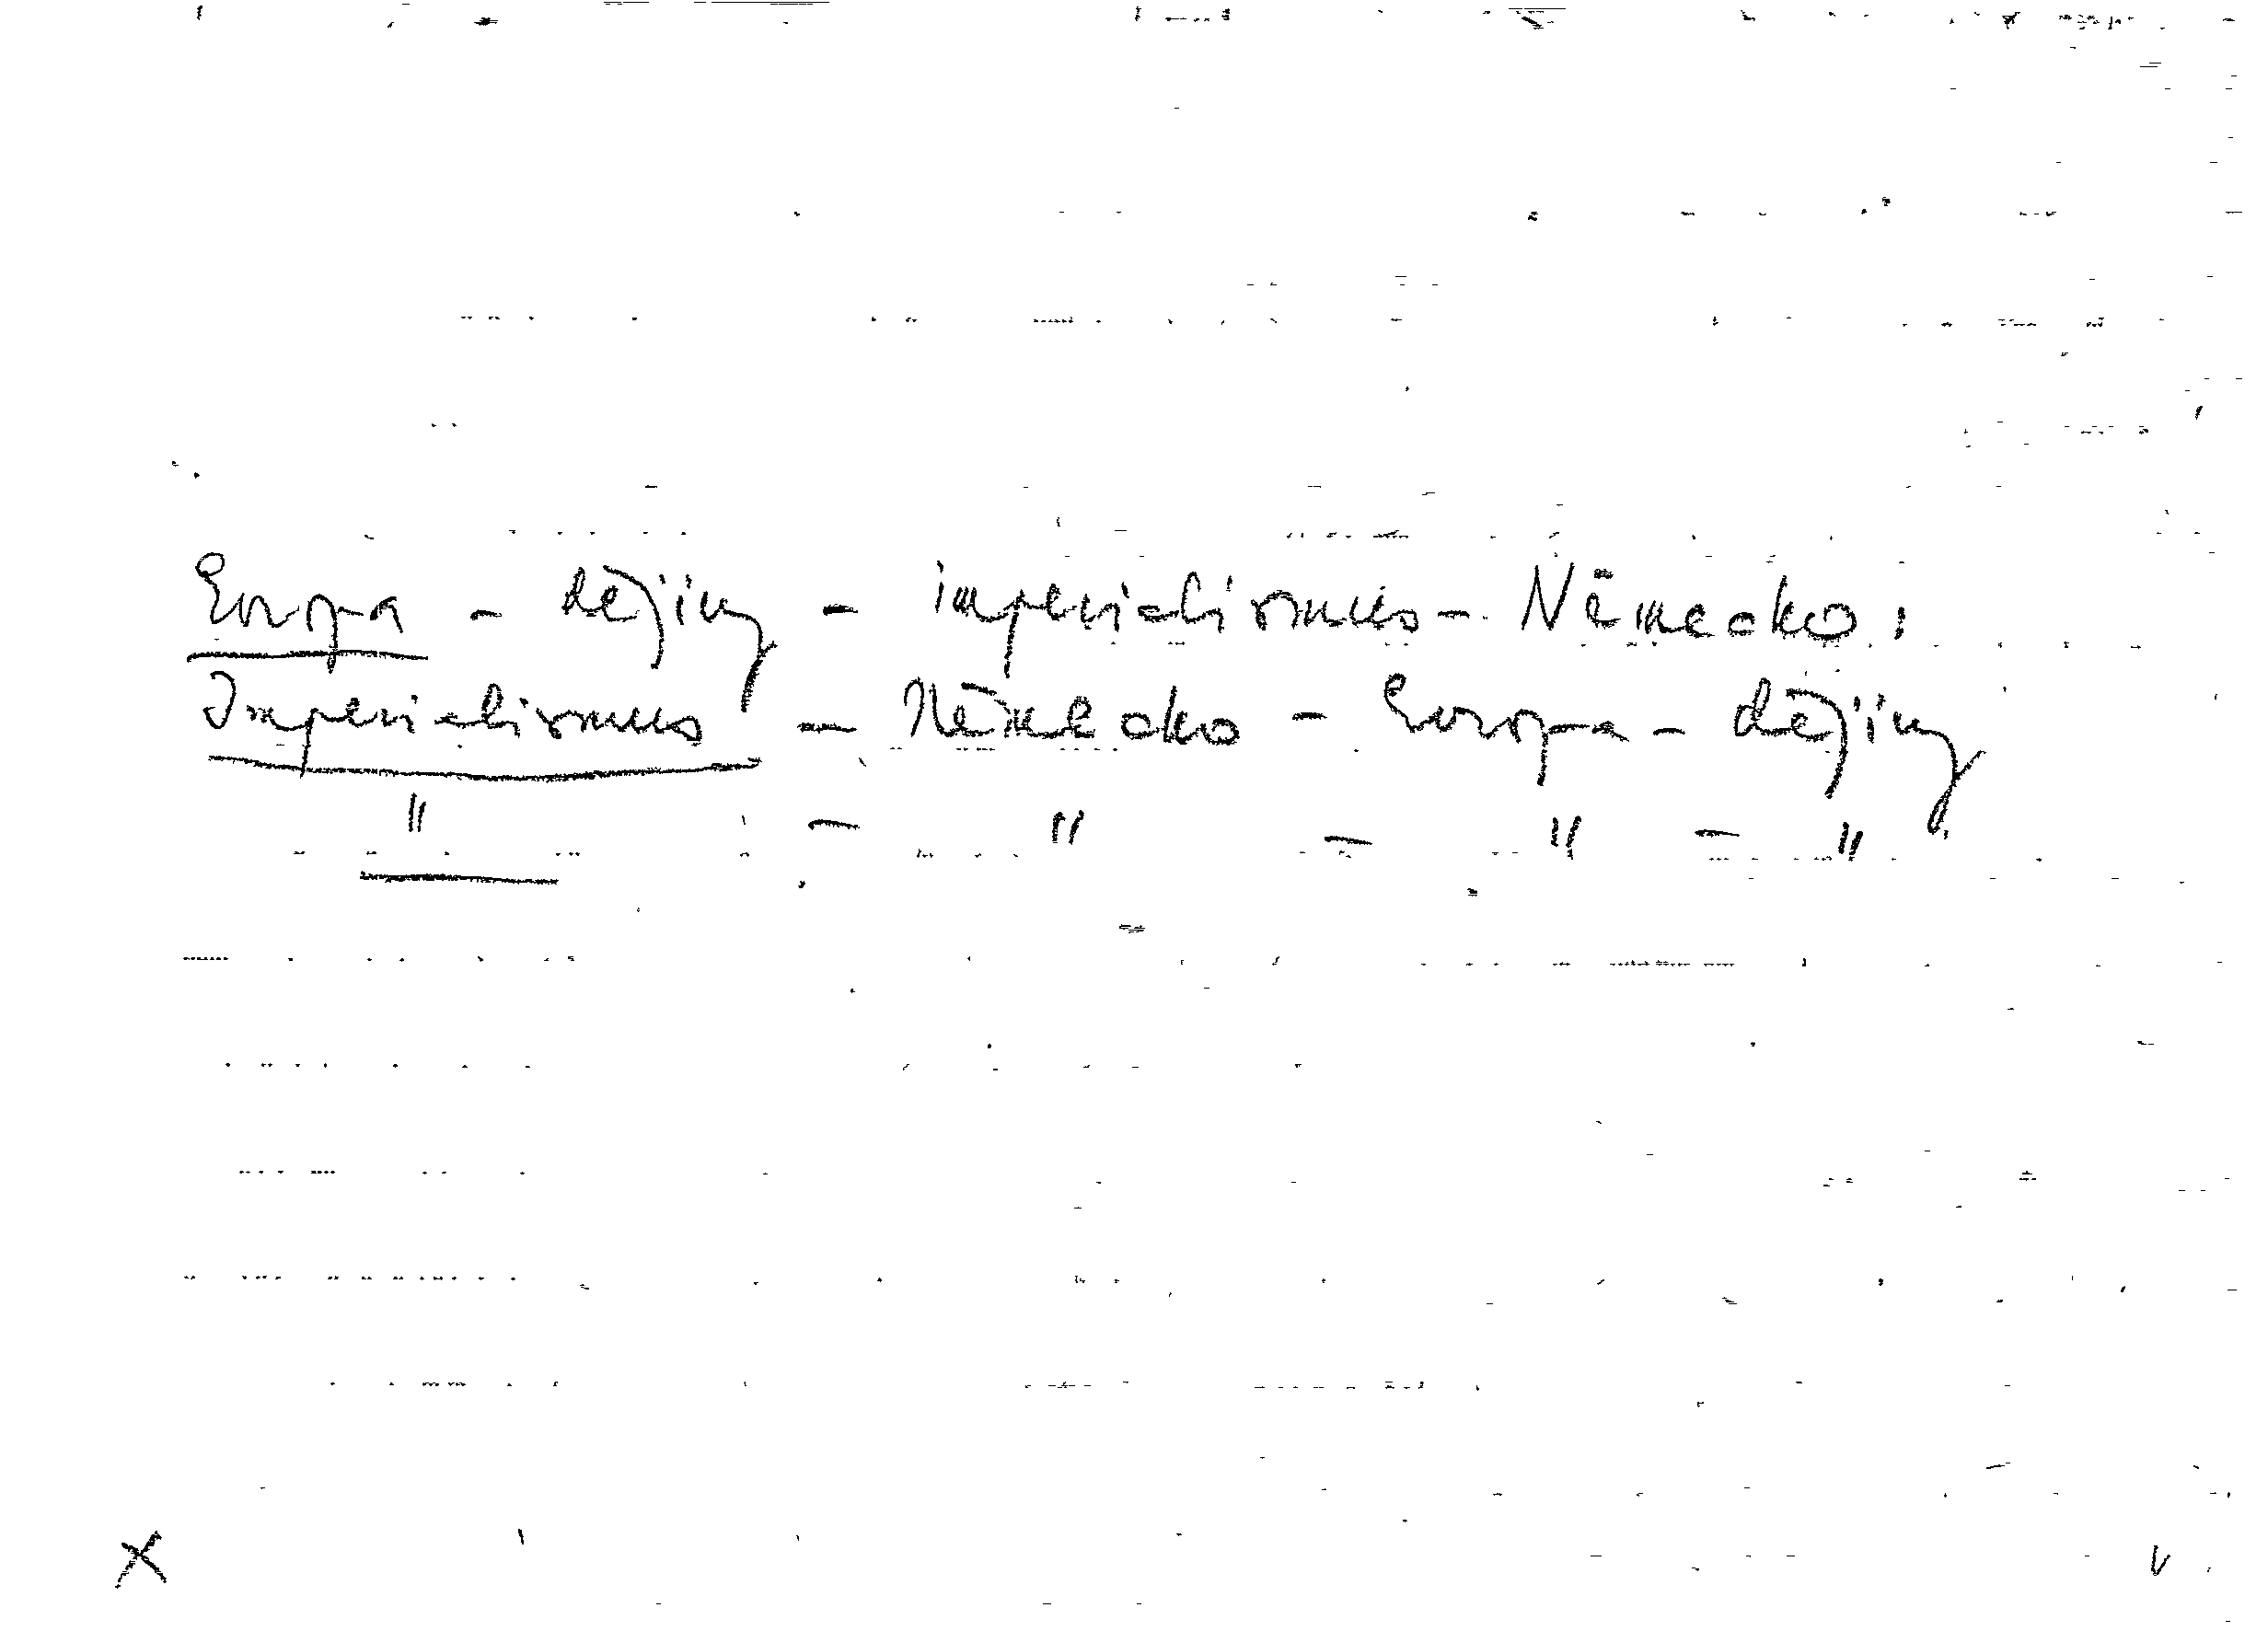 Evropa - dějiny - imperialismus - Německo:
Imperialismus - Německo - Evropa - dějiny
" - " - " - "
X V